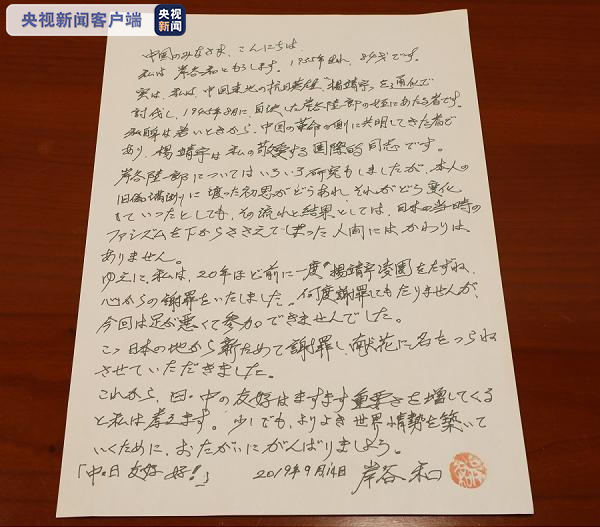 央视新闻客户端
央视新闻
中国のみなさま、こんにちは、
私は岸谷和ともうします。1935年生れ、84才です。
実は、私は、中国東北の抗日英雄"楊靖宇"を通化で
討伐し、1945年8月に自決した岸谷隆一郎の姪にあたる者です。
私は若いときから、中国の革命の側に共鳴してきた者で
あり、楊靖宇は私の敬愛する国際的同志です。
岸谷隆一郎についてはいろいろ研究もしましたが、本人の
旧偽満州に渡った初思がどうあれ、それがどう変化
していったとしても、その流れと結果としては、日本の当時の
ファシズムを下からささえてしまった人間にはかわりは
ありません。
ゆえに、私は、20年ほど前に一度"楊靖宇陵園をたずね、
心からの謝罪をいたしました。何度謝罪してもたりませんが、
今回は足が悪くて参加できませんでした。
この日本の地から新ためて謝罪し、献花に名をつらね
させていただきました。
これから、日・中の友好はますます重要さを増してくる
と私は考えます。少しでも、よりよき世界情勢を築いて
いくために、おたがいにがんばりましょう。
「中・日友好好！」 2019年9月14日 岸谷和